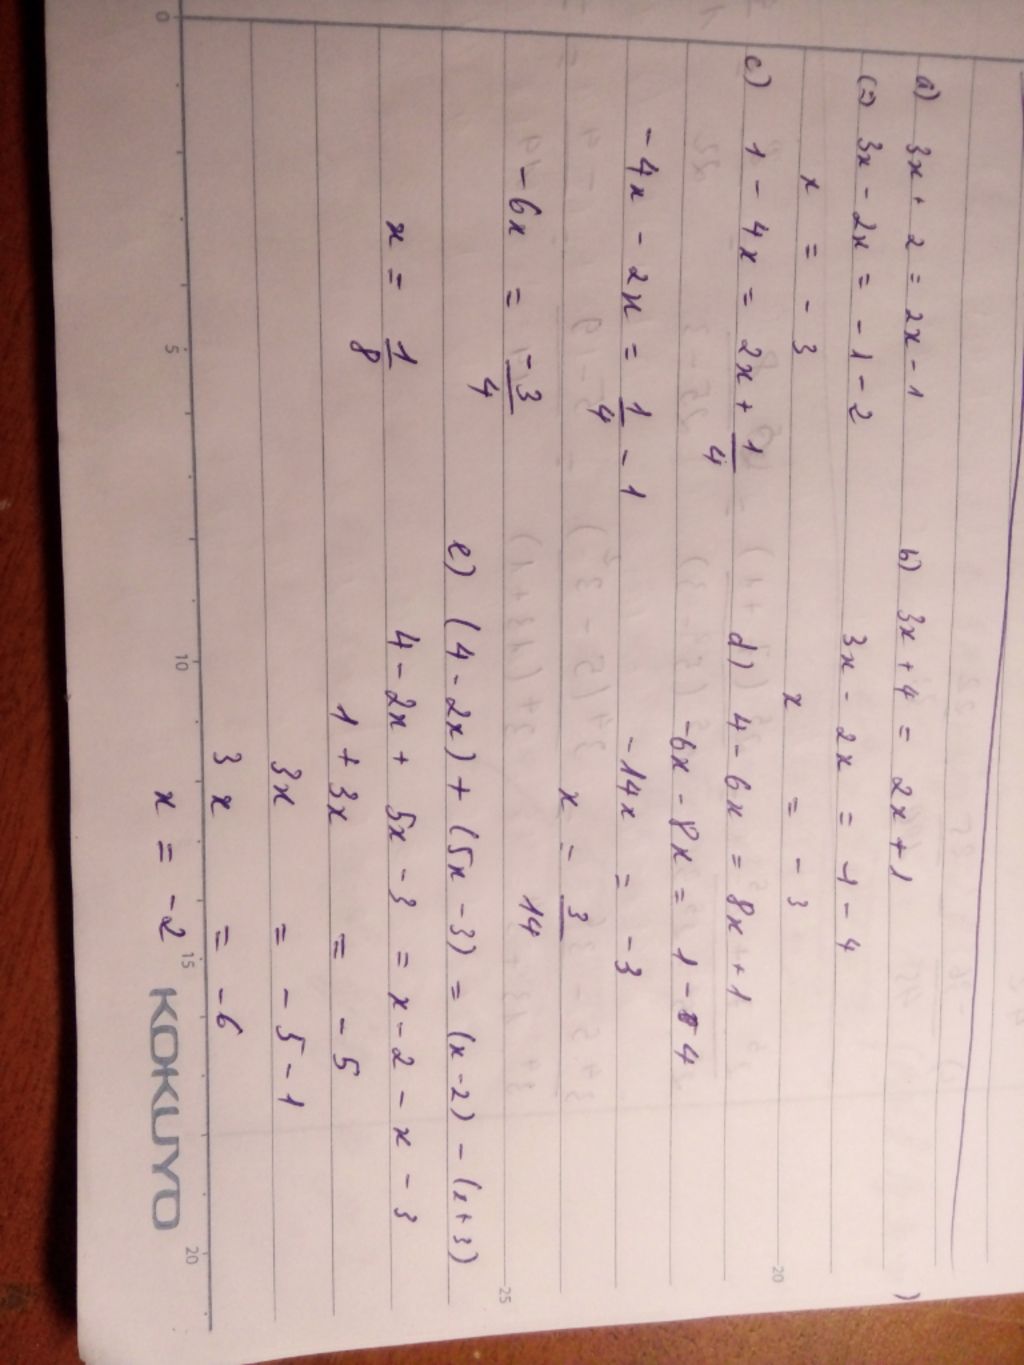 a) 3x + 2 = 2x - 1
(=) 3x - 2x = - 1 - 2
x = - 3
b) 3x + 4 = 2x + 1
3x - 2x = 1 - 4
x = - 3
c) 1 - 4x = 2x + 1/4
- 4x - 2x = 1/4 - 1
- 6x = -3/4
x = 1/8
d) 4 - 6x = 8x + 1
-6x - 8x = 1 - 4
- 14x = - 3
x = 3/14
e) (4 - 2x) + (5x - 3) = (x - 2) - (x + 3)
4 - 2x + 5x - 3 = x - 2 - x - 3
1 + 3x = - 5
3x = - 5 - 1
3x = - 6
x = - 2
0 5 10 15 20
20
25
KOKUYO